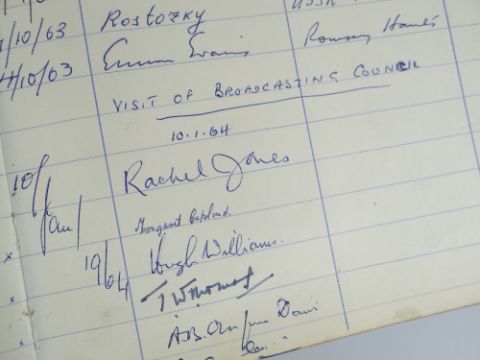 /10/63 Rostozky USSR
4/10/63 Emma Evans Romsey Hants
VISIT OF BROADCASTING COUNCIL
10.1.64
10/ Rachel Jones
Jan/ Margaret
1964 Hugh Williams.
T W Thomas